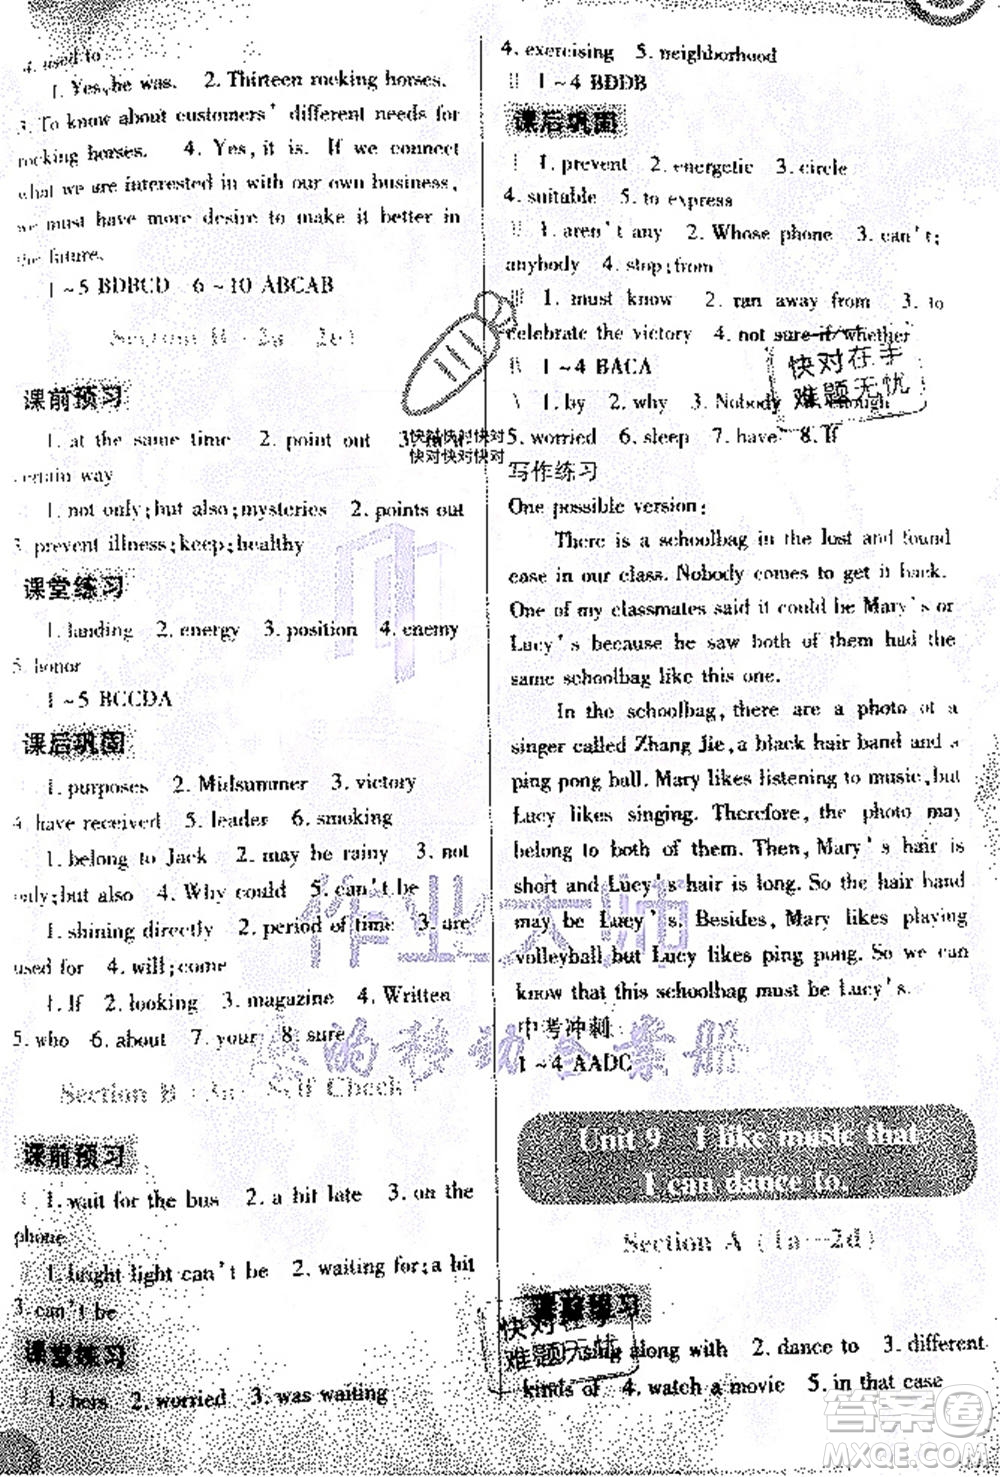 4. used to
1. Yes, he was. 2. Thirteen rocking horses.
3. To know about customers' different needs for
rocking horses. 4. Yes, it is. If we connect
what we are interested in with our own business,
we must have more desire to make it better in
the future.
1~5 BDBCD 6~10 ABCAB
Section B (2a—2e)
课前预习
1. at the same time 2. point out 3.
certain way
1. not only; but also; mysteries 2. points out
3. prevent illness; keep; healthy
课堂练习
1. landing 2. energy 3. position 4. enemy
5. honor
1~5 BCCDA
课后巩固
1. purposes 2. Midsummer 3. victory
4. have received 5. leader 6. smoking
1. belong to Jack 2. may be rainy 3. not
only; but also 4. Why could 5. can't be
1. shining directly 2. period of time 3. are
used for 4. will; come
1. If 2. looking 3. magazine 4. Written
5. who 6. about 7. your 8. sure
Section B (3a—Self Check)
课前预习
1. wait for the bus 2. a bit late 3. on the
phone
1. bright light can't be 2. waiting for; a bit
3. can't be
课堂练习
1. hers 2. worried 3. was waiting
4. exercising 5. neighborhood
1~4 BDDB
课后巩固
1. prevent 2. energetic 3. circle
4. suitable 5. to express
1. aren't any 2. Whose phone 3. can't;
anybody 4. stop; from
1. must know 2. ran away from 3. to
celebrate the victory 4. not sure if/whether
1~4 BACA
1. by 2. why 3. Nobody 4. enough
5. worried 6. sleep 7. have 8. If
写作练习
One possible version:
There is a schoolbag in the lost and found
case in our class. Nobody comes to get it back.
One of my classmates said it could be Mary's or
Lucy's because he saw both of them had the
same schoolbag like this one.
In the schoolbag, there are a photo of a
singer called Zhang Jie, a black hair band and a
ping pong ball. Mary likes listening to music, but
Lucy likes singing. Therefore, the photo may
belong to both of them. Then, Mary's hair is
short and Lucy's hair is long. So the hair band
may be Lucy's. Besides, Mary likes playing
volleyball but Lucy likes ping pong. So we can
know that this schoolbag must be Lucy's.
中考冲刺
1~4 AADC
Unit 9 I like music that
I can dance to.
Section A (1a—2d)
课前预习
1. sing along with 2. dance to 3. different
kinds of 4. watch a movie 5. in that case
快对快对快对
快对快对快对
快对在手
难题无忧
作业大师
快对在手
难题无忧
答案圈
MXQE.COM